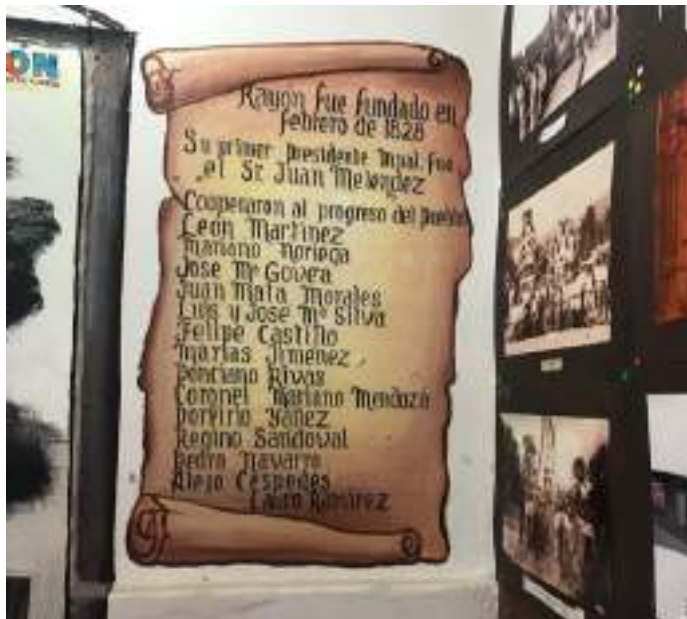 ÓN
Rayon fue fundado en
febrero de 1828
Su primer presidente mpal. fue
el Sr Juan Melendez
Cooperaron al progreso del pueblo
Leon Martinez
Mariano Noriega
Jose Mª Govea
Juan Mata Morales
Luis y Jose Mª Silva
Felipe Castillo
Matias Jimenez
Ponciano Rivas
Coronel Mariano Mendoza
Porfirio Yañez
Regino Sandoval
Pedro Navarro
Alejo Cespedes
Lauro Ramirez